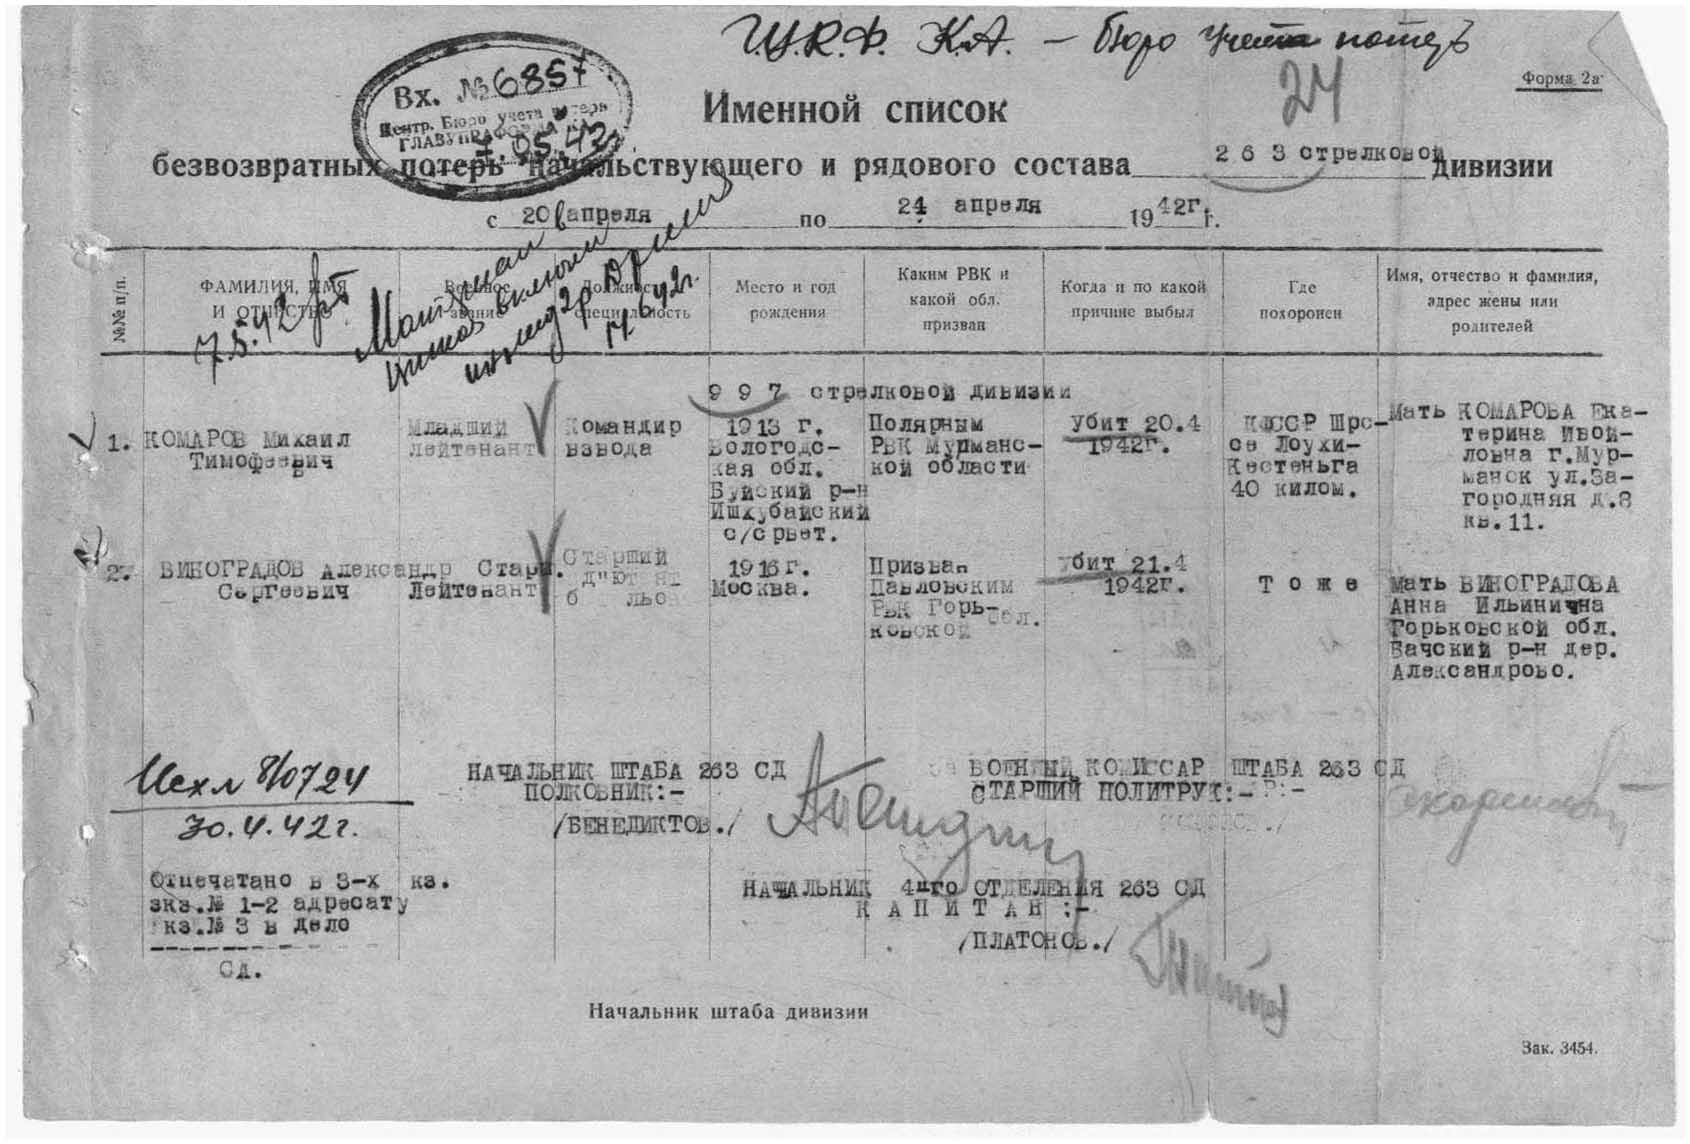 Г.У.К.Ф. К.А. — бюро учета потерь
Форма 2а
24
Вх. № 6857
Центр. Бюро учета потерь
ГЛАВУПРАФОРМА
7.05.42
Именной список
безвозвратных потерь начальствующего и рядового состава 263 стрелковой дивизии
с 20 апреля по 24 апреля 1942г. г.
7.5.42
17.6.42г.
№№ п/п.
ФАМИЛИЯ, ИМЯ И ОТЧЕСТВО
Военное звание
Должность специальность
Место и год рождения
Каким РВК и какой обл. призван
Когда и по какой причине выбыл
Где похоронен
Имя, отчество и фамилия, адрес жены или родителей
997 стрелковой дивизии
1. КОМАРОВ Михаил
Тимофеевич
Младший
лейтенант
Командир
взвода
1913 г.
Вологодс-
кая обл.
Буйский р-н
Ишхубайский
с/срвет.
Полярным
РВК Мурманс-
кой области
Убит 20.4
1942г.
КФССР Шрс-
се Лоухи-
Кестеньга
40 килом.
Мать КОМАРОВА Ека-
терина Ивой-
ловна г.Мур-
манск ул.За-
городняя д.8
кв.11.
2. ВИНОГРАДОВ Александр
Сергеевич
Старш.
Лейтенант
Старший
1916г.
Москва.
Призван
Павловским
РВК Горь-
ковской обл.
Убит 21.4
1942г.
Т о ж е
Мать ВИНОГРАДОВА
Анна Ильинична
Горьковской обл.
Вачский р-н дер.
Александрово.
Исх№ 8/0724
30.4.42г.
НАЧАЛЬНИК ШТАБА 263 СД
ПОЛКОВНИК:-
/БЕНЕДИКТОВ./
ВОЕННЫЙ КОМИССАР ШТАБА 263 СД
СТАРШИЙ ПОЛИТРУК:-
Отпечатано в 3-х кз.
экз.№ 1-2 адресату
кз.№ 3 в дело
СД.
НАЧАЛЬНИК 4-го ОТДЕЛЕНИЯ 263 СД
К А П И Т А Н :-
/ПЛАТОНОВ./
Начальник штаба дивизии
Зак. 3454.